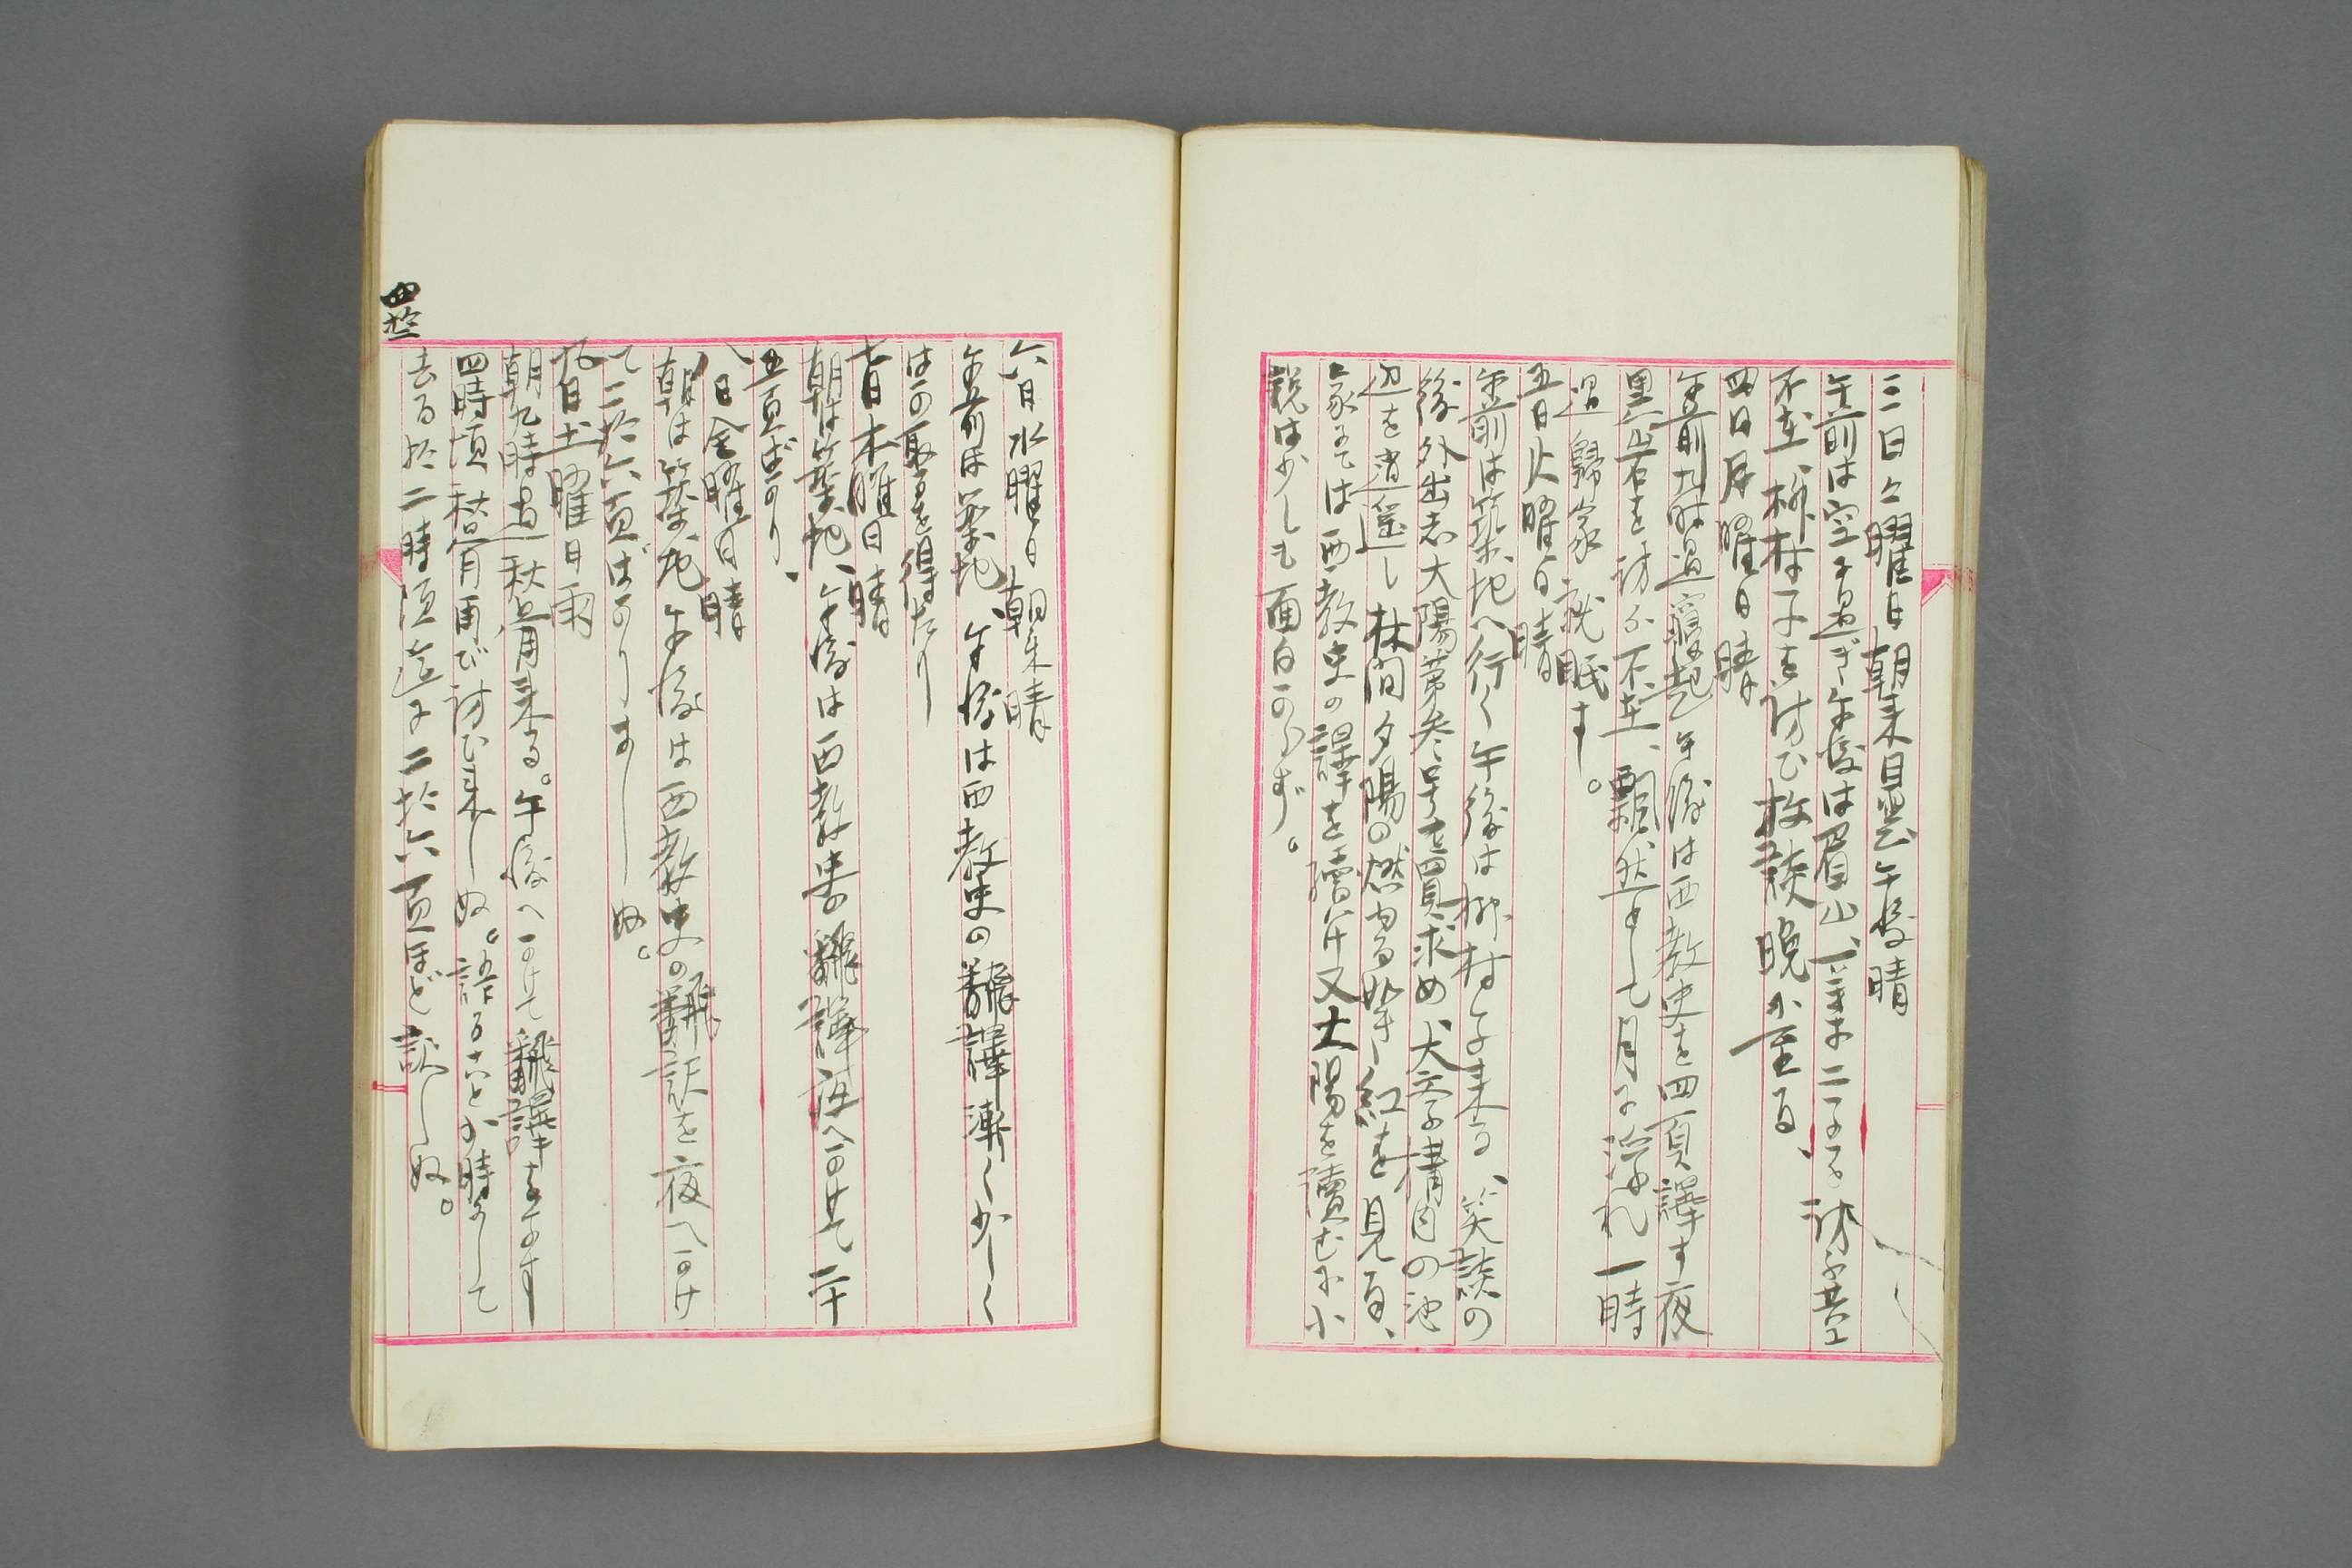 三日日曜日朝来曇午後晴
午前は空に過ぎ午後は眉山、二子を訪ふ其
不在、柳村子を訪ひ放談晩に至る、
四日月曜日晴
午前九時過寝起午後は西教史を四頁譯す夜
黒岩を訪ふ不在、飄然として月に浮れ一時
過歸家就眠す。
五日火曜日晴
午前は築地へ行く午後は柳村子来る、笑談の
後外出志大陽第参号を買求め、大学構内の池
辺を逍遥し林間夕陽の燃ゆる如き紅を見る、
家にては西教史の譯を續け又太陽を讀むに小
説は少しも面白からず。
六日水曜日朝来晴
午前は築地、午後は西教史の飜譯漸く少しく
はか取るを得たり
七日木曜日晴
朝は築地、午後は西教史の飜譯夜へかけて二十
五頁ばかり、
八日金曜日晴
朝は築地午後は西教史の飜訳を夜へかけ
て二拾六頁ばかりましぬ。
九日土曜日雨
朝九時過秋骨来る。午後へかけて飜譯をなす
四時頃秋骨再び訪ひ来しぬ。語ること少時にして
去る拾二時頃迄に二拾六頁ほど訳しぬ。